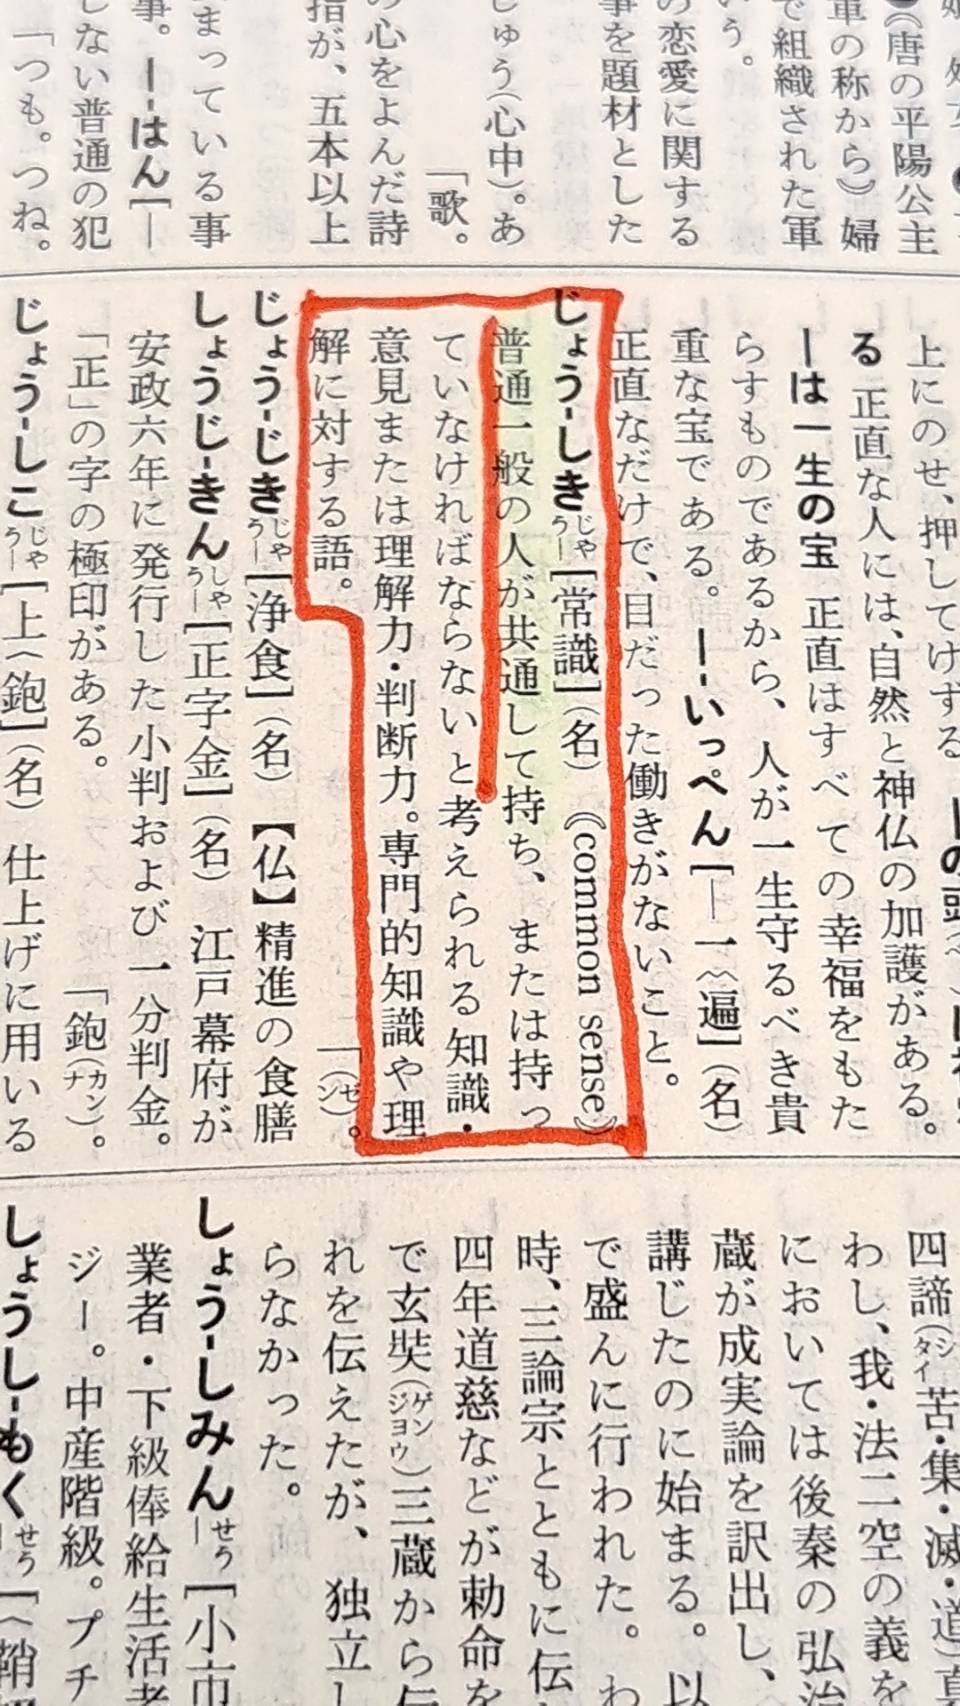 《唐の平陽公主
軍の称から》婦
で組織された軍
う。
事を題材とした
の恋愛に関する
じゅう(心中)。あ
「歌。
の心をよんだ詩
指が、五本以上
まっている事
事。 ―-はん[―
しない普通の犯
「つも。つね。
上にのせ、押してけずる
る 正直な人には、自然と神仏の加護がある。
―は一生の宝 正直はすべての幸福をもた
らすものであるから、人が一生守るべき貴
重な宝である。 ―-いっぺん[―一遍](名)
正直なだけで、目だった働きがないこと。
じょう-しき じゃう―[常識](名) 《common sense》
普通一般の人が共通して持ち、または持っ
ていなければならないと考えられる知識・
意見または理解力・判断力。専門的知識や理
解に対する語。 「(ゼン)。
じょう-じき じゃう―[浄食](名) 【仏】精進の食膳
しょうじ-きん しゃう―[正字金](名) 江戸幕府が
安政六年に発行した小判および一分判金。
「正」の字の極印がある。 「鉋(カンナ)。
じょう-しこ じゃう―[上〈鉋](名) 仕上げに用いる
四諦(シタイ)苦・集・滅・道
わし、我・法二空の義を
においては後秦の弘
蔵が成実論を訳出し、
講じたのに始まる。以
で盛んに行われた。わ
時、三論宗とともに伝
四年道慈などが勅命を
で玄奘(ゲンジョウ)三蔵から伝
れを伝えたが、独立し
らなかった。
しょう-しみん せう―[小市
業者・下級俸給生活者
ジー。中産階級。プチ
しょうし-もく せう―[〈鞘